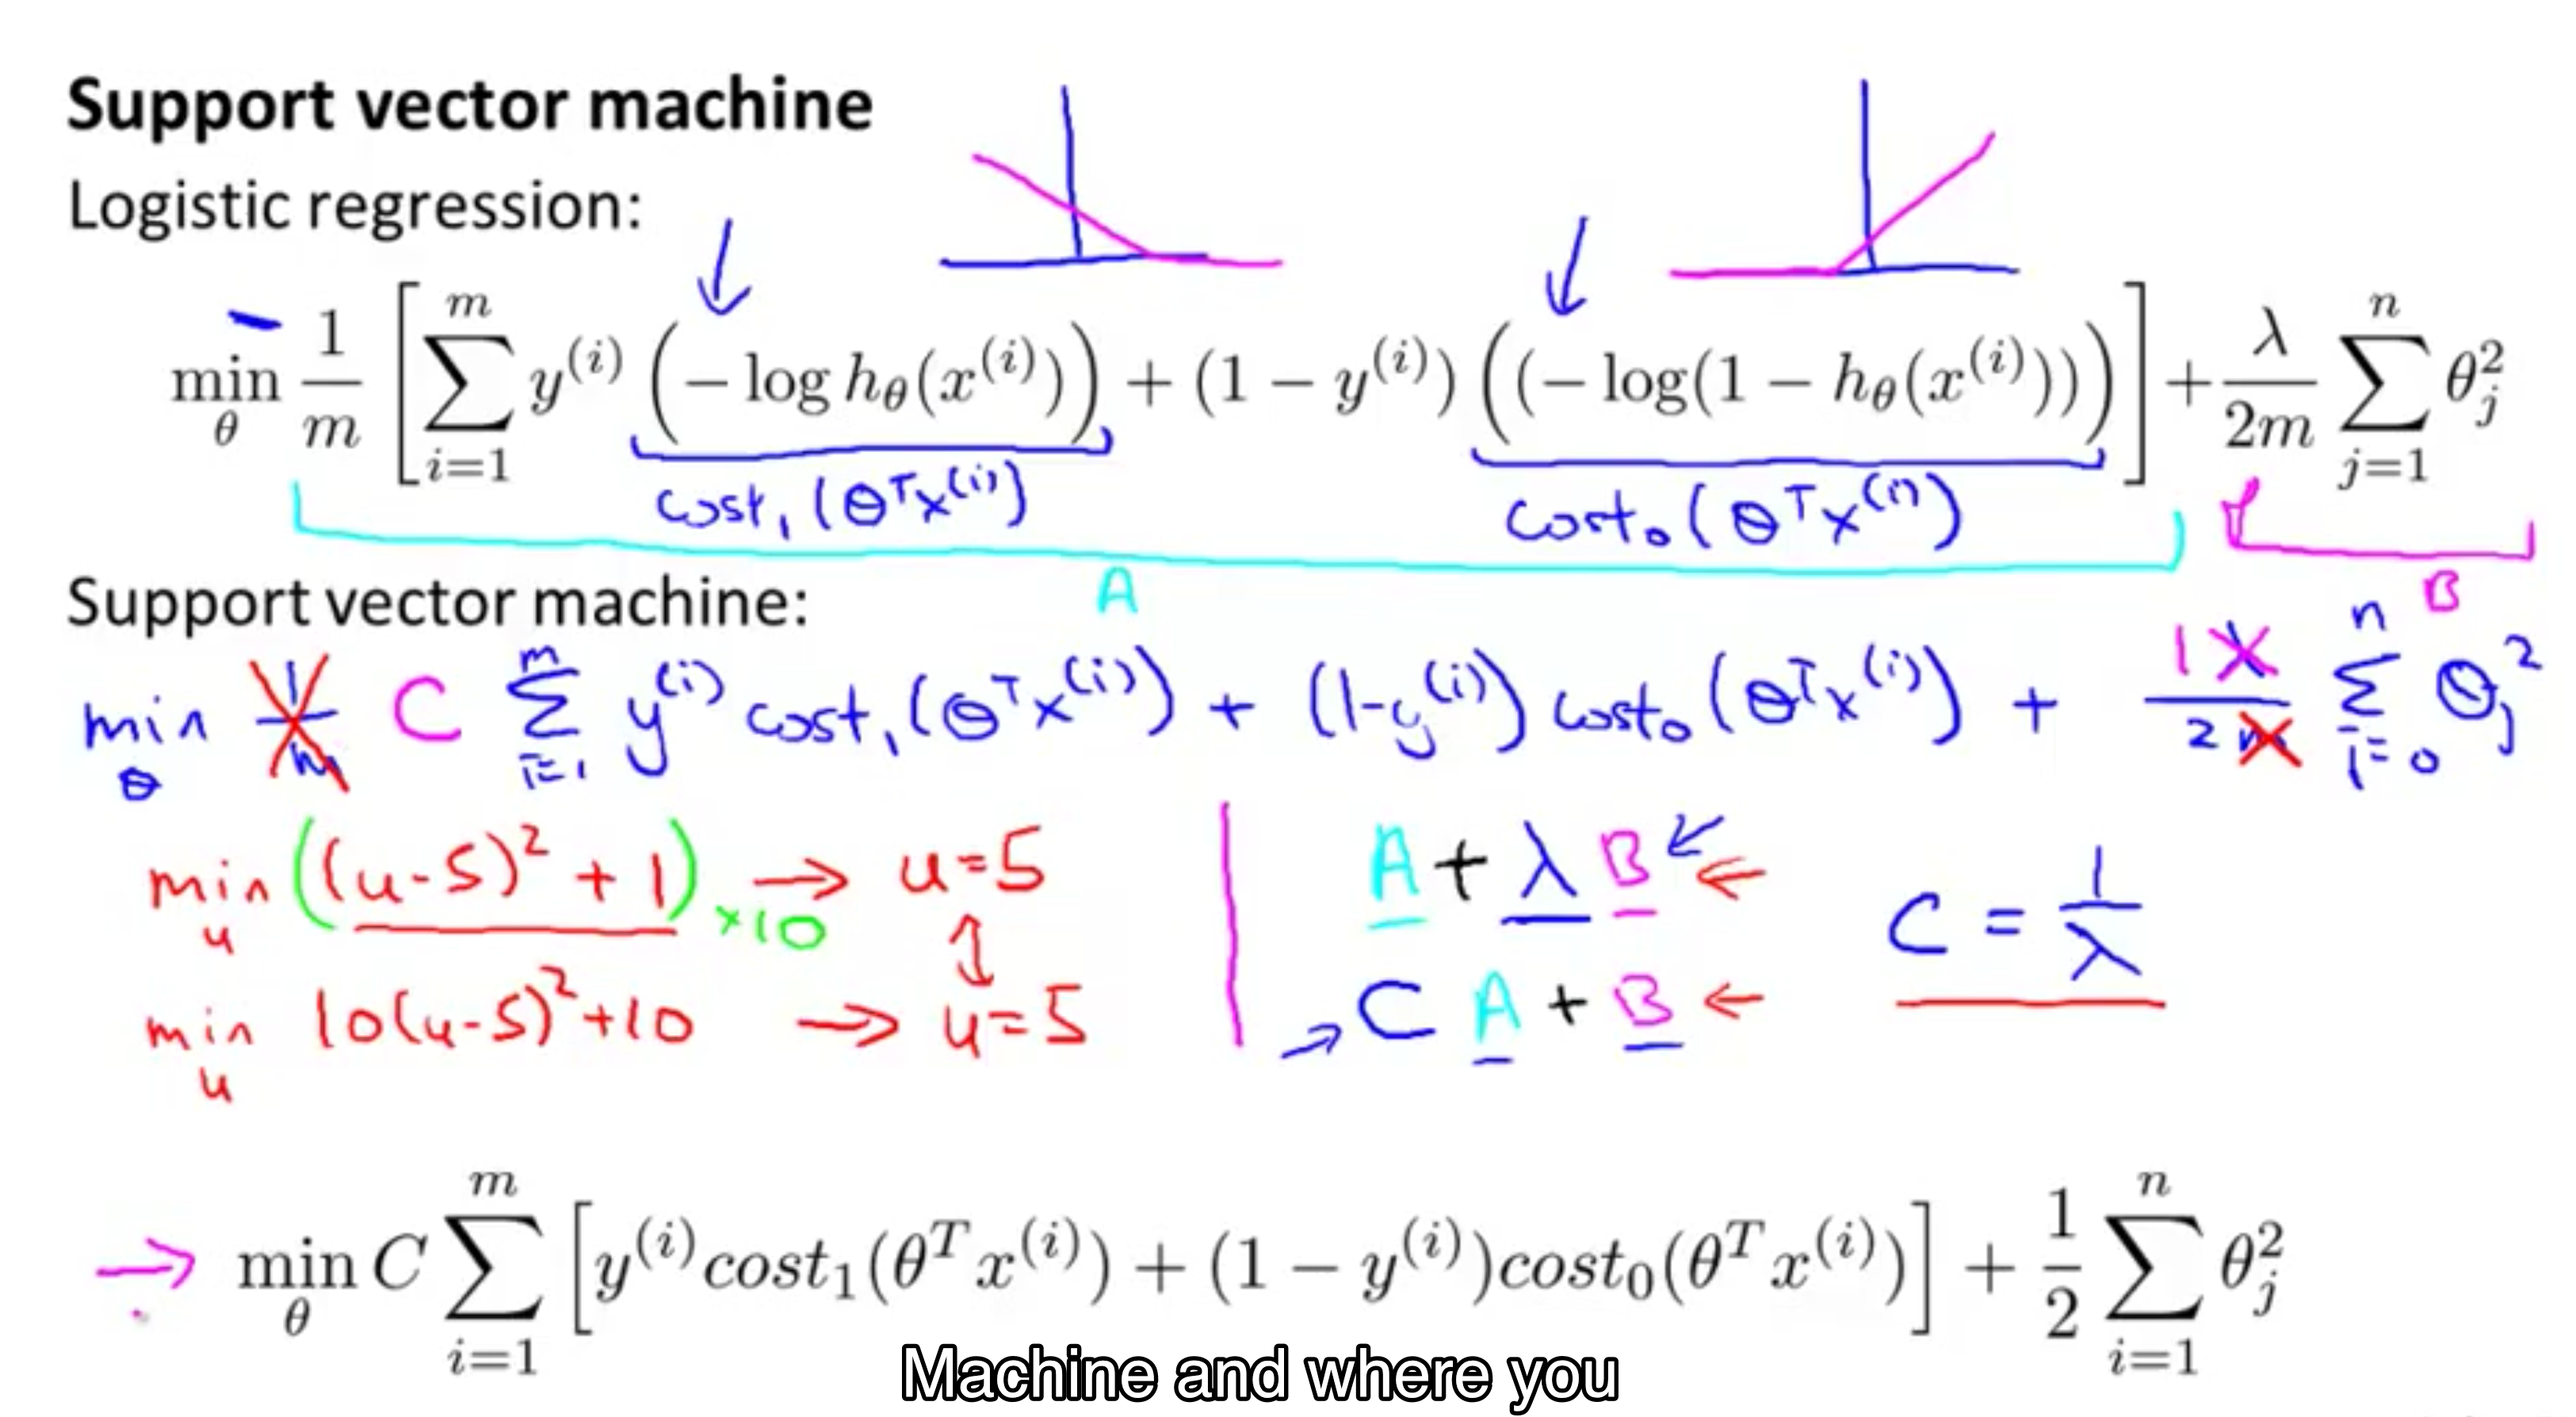 Support vector machine
Logistic regression:
min_θ 1/m [ ∑_{i=1}^{m} y^{(i)} (− log h_θ(x^{(i)})) + (1 − y^{(i)}) ((− log(1 − h_θ(x^{(i)}))) ] + λ/2m ∑_{j=1}^{n} θ_j^2
cost₁(θᵀx⁽ⁱ⁾) cost₀(θᵀx⁽ⁱ⁾)
A B
Support vector machine:
min_θ 1/m C ∑_{i=1}^{m} y^{(i)} cost₁(θᵀx⁽ⁱ⁾) + (1-y^{(i)}) cost₀(θᵀx⁽ⁱ⁾) + 1 λ/2m ∑_{i=0}^{n} θ_j^2
min_u ((u-5)² + 1) ×10 → u=5
A + λ B ←
C = 1/λ
min_u 10(u-5)²+10 → u=5
→ C A + B ←
→ min_θ C ∑_{i=1}^{m} [ y^{(i)} cost₁(θᵀx⁽ⁱ⁾) + (1 − y^{(i)}) cost₀(θᵀx⁽ⁱ⁾) ] + 1/2 ∑_{i=1}^{n} θ_j^2
Machine and where you